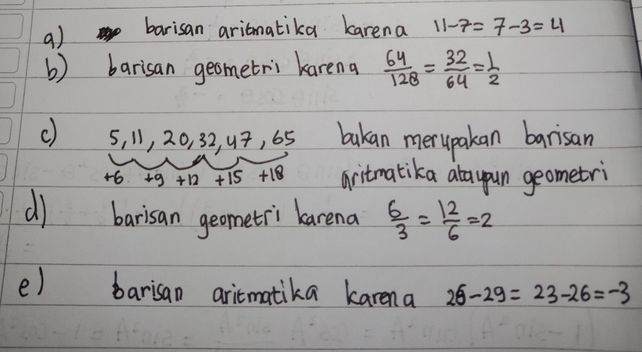 a) barisan aritmatika karena 11-7 = 7-3 = 4
b) barisan geometri karena 64/128 = 32/64 = 1/2
c) 5, 11, 20, 32, 47, 65 bukan merupakan barisan
+6 +9 +12 +15 +18 aritmatika ataupun geometri
d) barisan geometri karena 6/3 = 12/6 = 2
e) barisan aritmatika karena 26-29 = 23-26 = -3